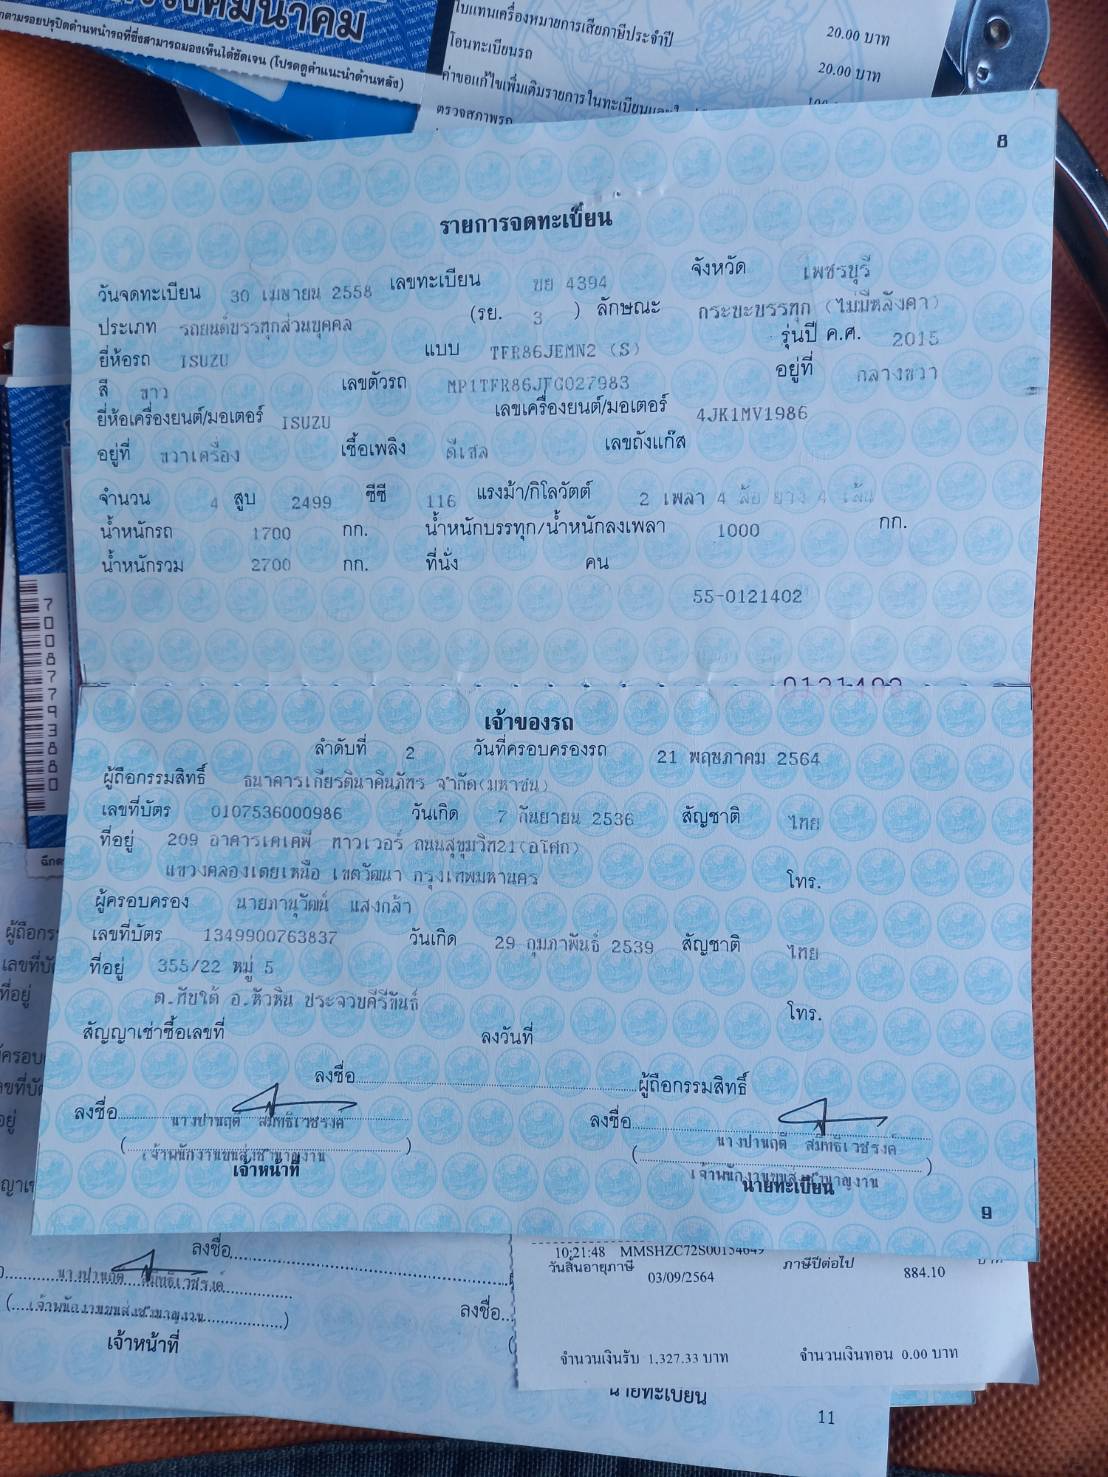 ใบแทนเครื่องหมายการเสียภาษีประจำปี 20.00 บาท
โอนทะเบียนรถ 20.00 บาท
ค่าขอแก้ไขเพิ่มเติมรายการในทะเบียน
ตรวจสภาพรถ
(โปรดดูคำแนะนำด้านหลัง)
8
รายการจดทะเบียน
วันจดทะเบียน 30 เมษายน 2558 เลขทะเบียน ขย 4394 จังหวัด เพชรบุรี
ประเภท รถยนต์บรรทุกส่วนบุคคล (รย. 3 ) ลักษณะ กระบะบรรทุก (ไม่มีหลังคา)
ยี่ห้อรถ ISUZU แบบ TFR86JEMN2 (S) รุ่นปี ค.ศ. 2015
สี ขาว เลขตัวรถ MP1TFR86JFG027983 อยู่ที่ กลางขวา
ยี่ห้อเครื่องยนต์/มอเตอร์ ISUZU เลขเครื่องยนต์/มอเตอร์ 4JK1MV1986
อยู่ที่ ขวาเครื่อง เชื้อเพลิง ดีเซล เลขถังแก๊ส
จำนวน 4 สูบ 2499 ซีซี 116 แรงม้า/กิโลวัตต์ 2 เพลา 4 ล้อ ยาง 4 เส้น
น้ำหนักรถ 1700 กก. น้ำหนักบรรทุก/น้ำหนักลงเพลา 1000 กก.
น้ำหนักรวม 2700 กก. ที่นั่ง คน
55-0121402
0121402
เจ้าของรถ
ลำดับที่ 2 วันที่ครอบครองรถ 21 พฤษภาคม 2564
ผู้ถือกรรมสิทธิ์ ธนาคารเกียรตินาคินภัทร จำกัด(มหาชน)
เลขที่บัตร 0107536000986 วันเกิด 7 กันยายน 2536 สัญชาติ ไทย
ที่อยู่ 209 อาคารเคเคพี ทาวเวอร์ ถนนสุขุมวิท21(อโศก)
แขวงคลองเตยเหนือ เขตวัฒนา กรุงเทพมหานคร โทร.
ผู้ครอบครอง นายภานุวัฒน์ แสงกล้า
เลขที่บัตร 1349900763837 วันเกิด 29 กุมภาพันธ์ 2539 สัญชาติ ไทย
ที่อยู่ 355/22 หมู่ 5
ต.ทับใต้ อ.หัวหิน ประจวบคีรีขันธ์ โทร.
สัญญาเช่าซื้อเลขที่ ลงวันที่
ลงชื่อ ผู้ถือกรรมสิทธิ์
ลงชื่อ ลงชื่อ
นางปานฤดี สมิทธิเวชรงค์ นางปานฤดี สมิทธิเวชรงค์
เจ้าพนักงานขนส่งชำนาญงาน เจ้าพนักงานขนส่งชำนาญงาน
เจ้าหน้าที่ นายทะเบียน
9
70087793880
ลงชื่อ
นางปานฤดี สมิทธิเวชรงค์
เจ้าพนักงานขนส่งชำนาญงาน
เจ้าหน้าที่
ลงชื่อ
10:21:48
วันสิ้นอายุภาษี 03/09/2564 ภาษีปีต่อไป 884.10 บาท
จำนวนเงินรับ 1,327.33 บาท จำนวนเงินทอน 0.00 บาท
นายทะเบียน
11